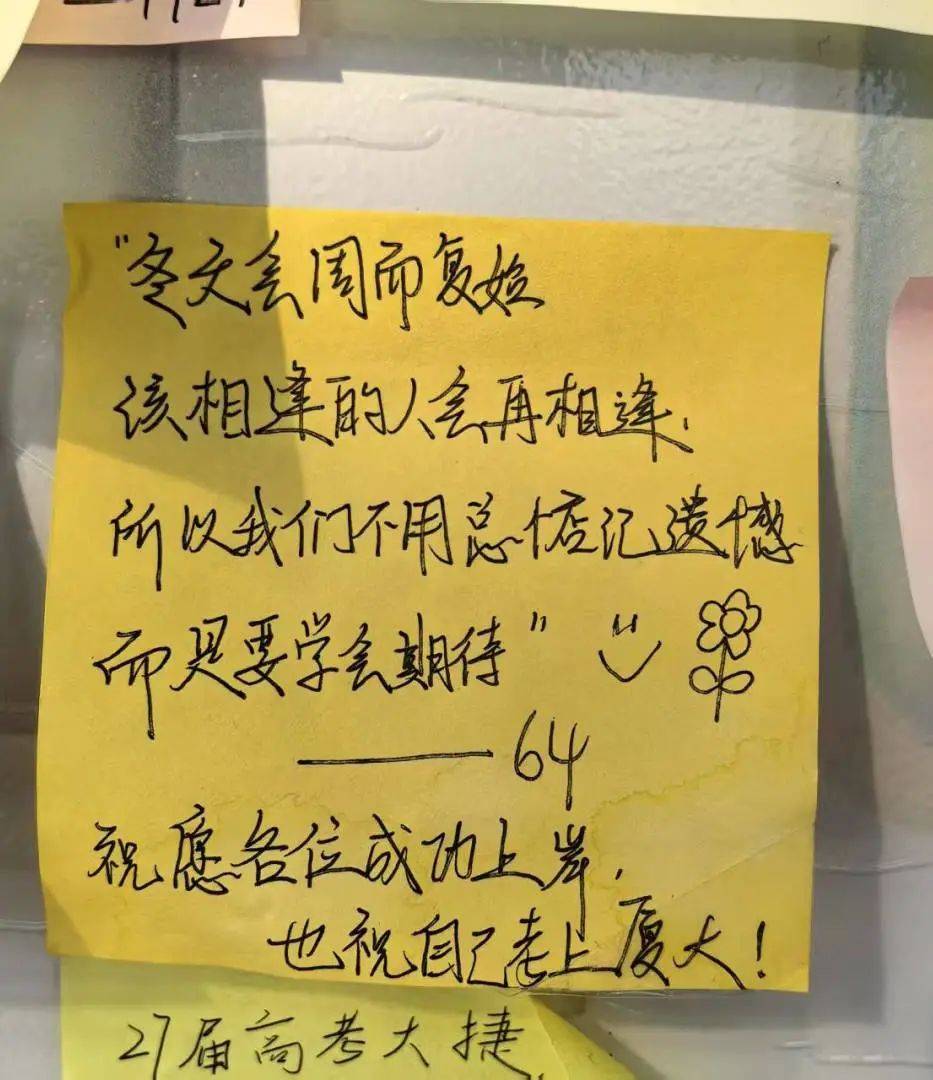 "冬天会周而复始
该相逢的人会再相逢.
所以我们不用总惦记遗憾
而是要学会期待"
—— 64
祝愿各位成功上岸.
也祝自己考上厦大!
27届高考大捷